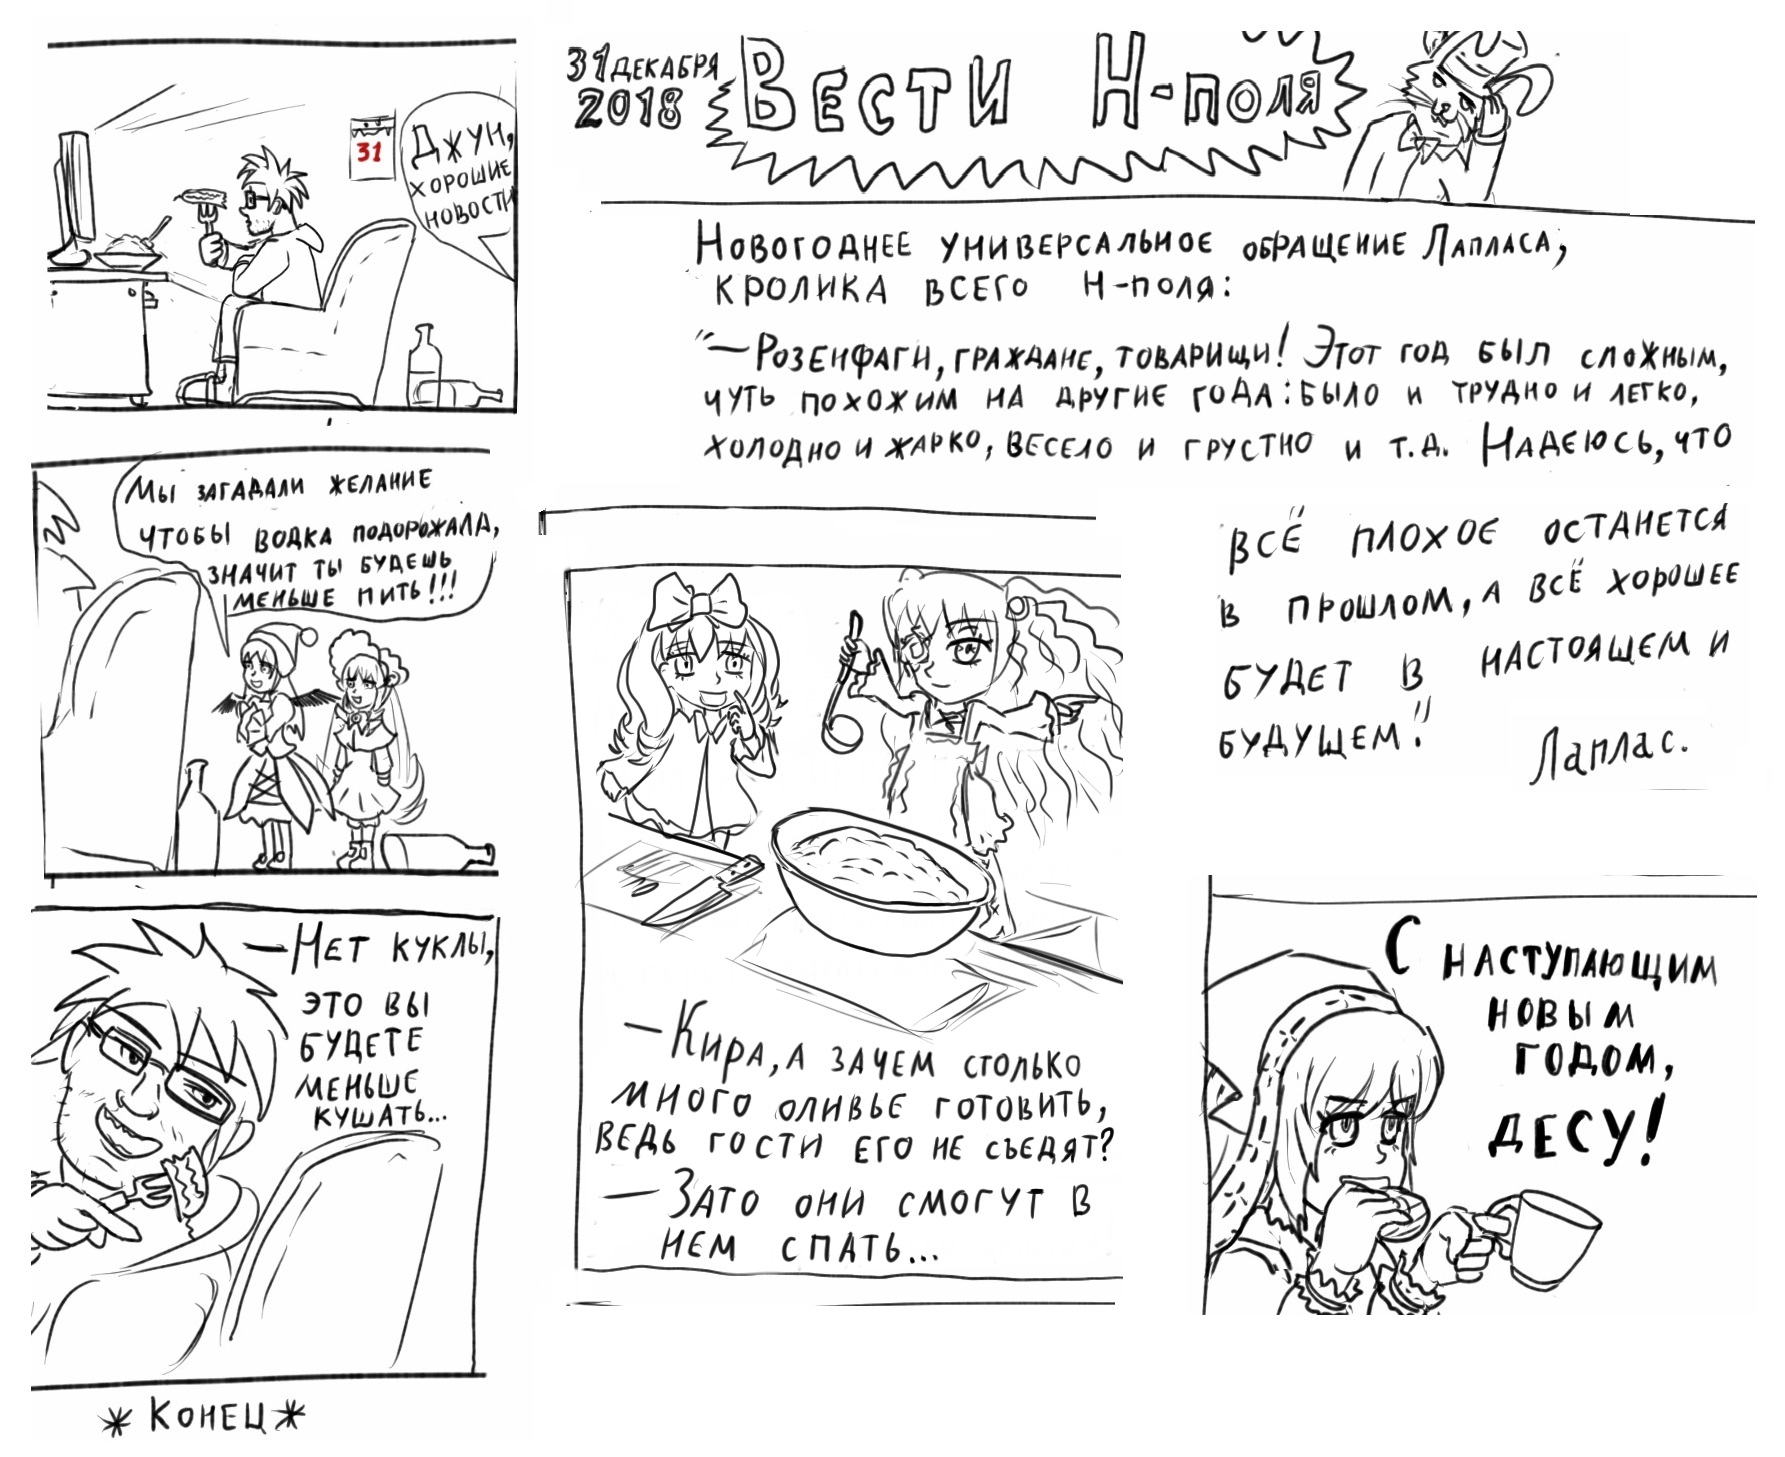 31
Джун,
хорошие
новости
Мы загадали желание
чтобы водка подорожала,
значит ты будешь
меньше пить!!!
— Нет куклы,
это вы
будете
меньше
кушать...
* Конец *
31 декабря
2018
Вести Н-поля
Новогоднее универсальное обращение Лапласа,
кролика всего Н-поля:
"— Розенфаги, граждане, товарищи! Этот год был сложным,
чуть похожим на другие года: было и трудно и легко,
холодно и жарко, весело и грустно и т.д. Надеюсь, что
всё плохое останется
в прошлом, а всё хорошее
будет в настоящем и
будущем!"
Лаплас.
— Кира, а зачем столько
много оливье готовить,
ведь гости его не съедят?
— Зато они смогут в
нем спать...
С наступающим
новым
годом,
десу!